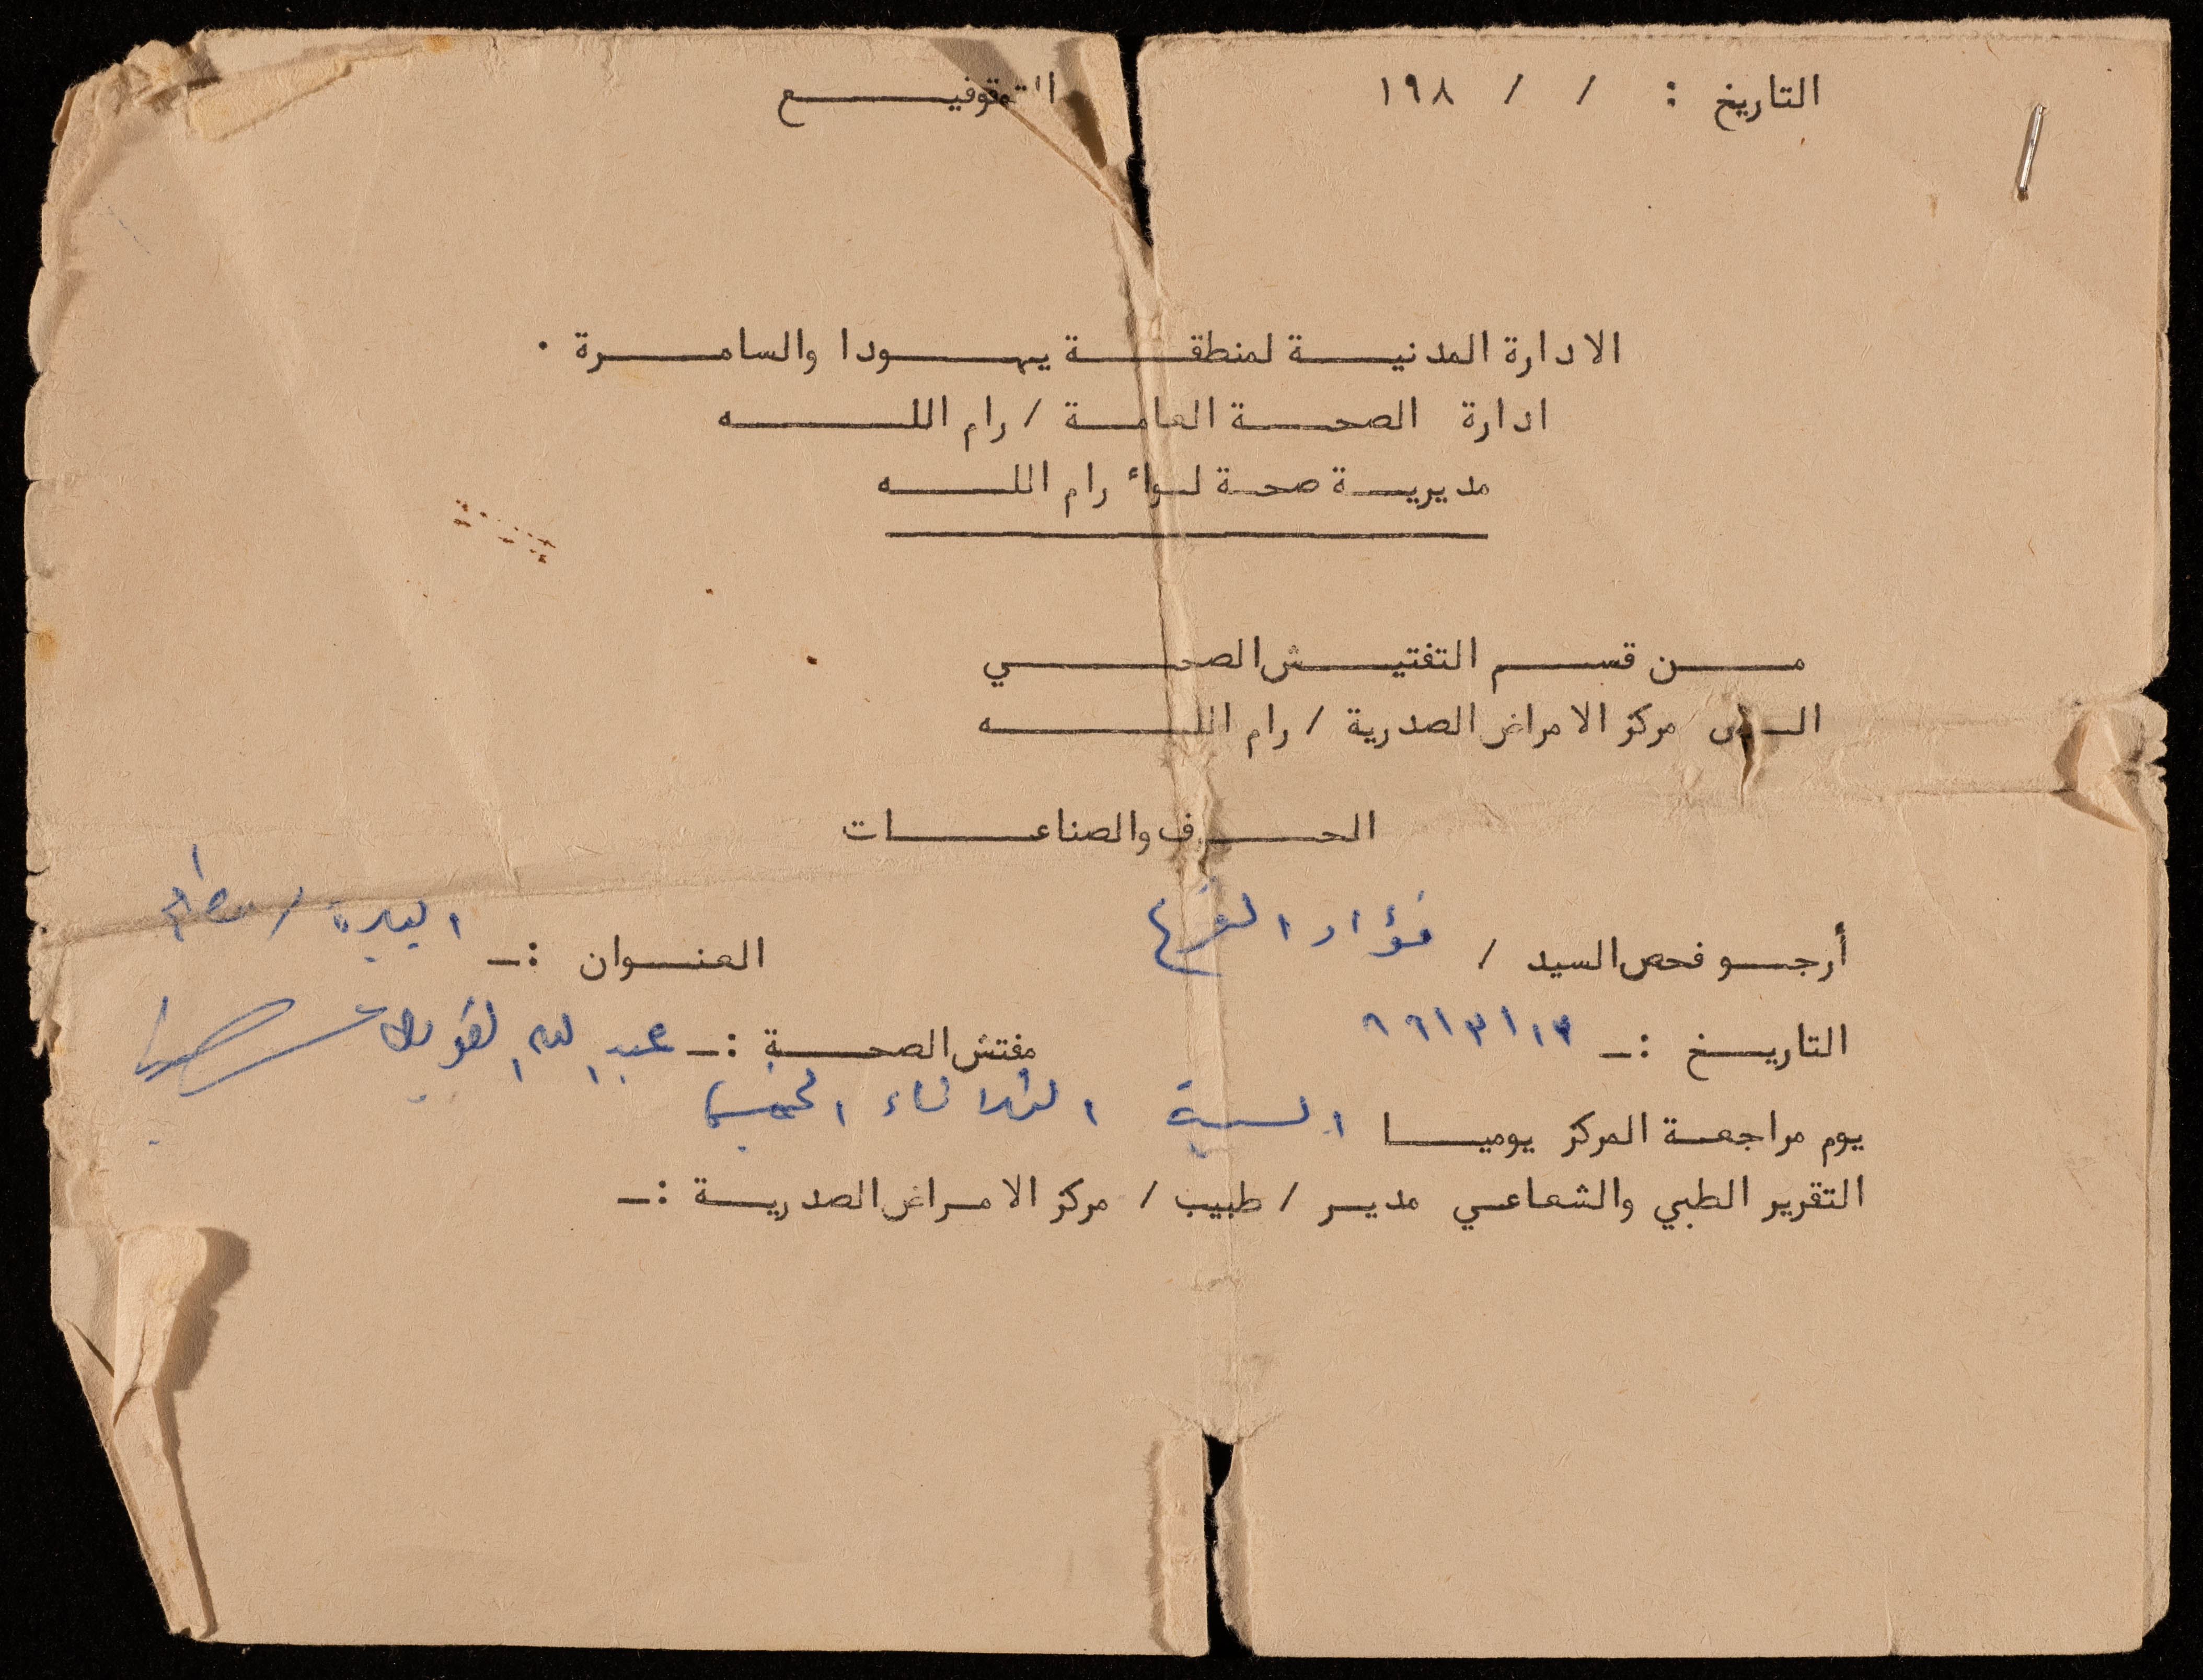 التاريخ : / / ١٩٨ التوقيع
الادارة المدنية لمنطقة يهودا والسامرة .
ادارة الصحة العامة / رام الله
مديرية صحة لواء رام الله
من قسم التفتيش الصحي
الى مركز الامراض الصدرية / رام الله
الحرف والصناعات
أرجو فحص السيد / فؤاد العنوان :ـ البيرة /
التاريخ :ـ مفتش الصحة :ـ عبد الله
يوم مراجعة المركز يوميا السبت الثلاثاء الخميس
التقرير الطبي والشعاعي مدير / طبيب / مركز الامراض الصدرية :ـ